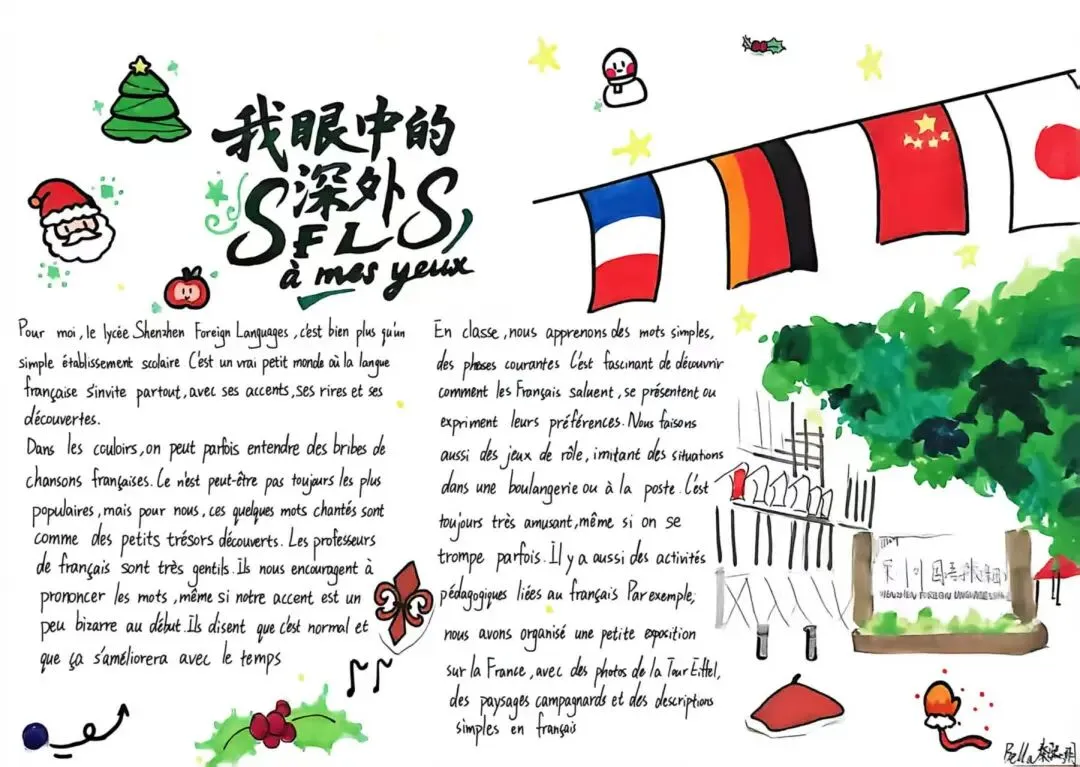 我眼中的
深外
SFLS
à mes yeux
Pour moi, le lycée Shenzhen Foreign Languages, c'est bien plus qu'un
simple établissement scolaire C'est un vrai petit monde où la langue
française s'invite partout, avec ses accents, ses rires et ses
découvertes.
Dans les couloirs, on peut parfois entendre des bribes de
chansons françaises. Ce n'est peut-être pas toujours les plus
populaires, mais pour nous, ces quelques mots chantés sont
comme des petits trésors découverts. Les professeurs
de français sont très gentils. Ils nous encouragent à
prononcer les mots, même si notre accent est un
peu bizarre au début. Ils disent que c'est normal et
que ça s'améliorera avec le temps
En classe, nous apprenons des mots simples,
des phases courantes C'est fascinant de découvrir
comment les Français saluent, se présentent ou
expriment leurs préférences. Nous faisons
aussi des jeux de rôle, imitant des situations
dans une boulangerie ou à la poste. C'est
toujours très amusant, même si on se
trompe parfois. Il y a aussi des activités
pédagogiques liées au français Par exemple,
nous avons organisé une petite exposition
sur la France, avec des photos de la Tour Eiffel,
des paysages campagnards et des descriptions
simples en français
Bella